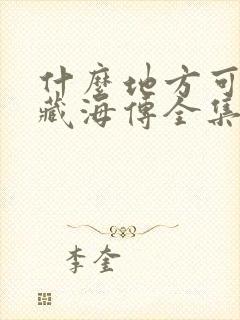 什麼地方可
藏海傳全集
李奎